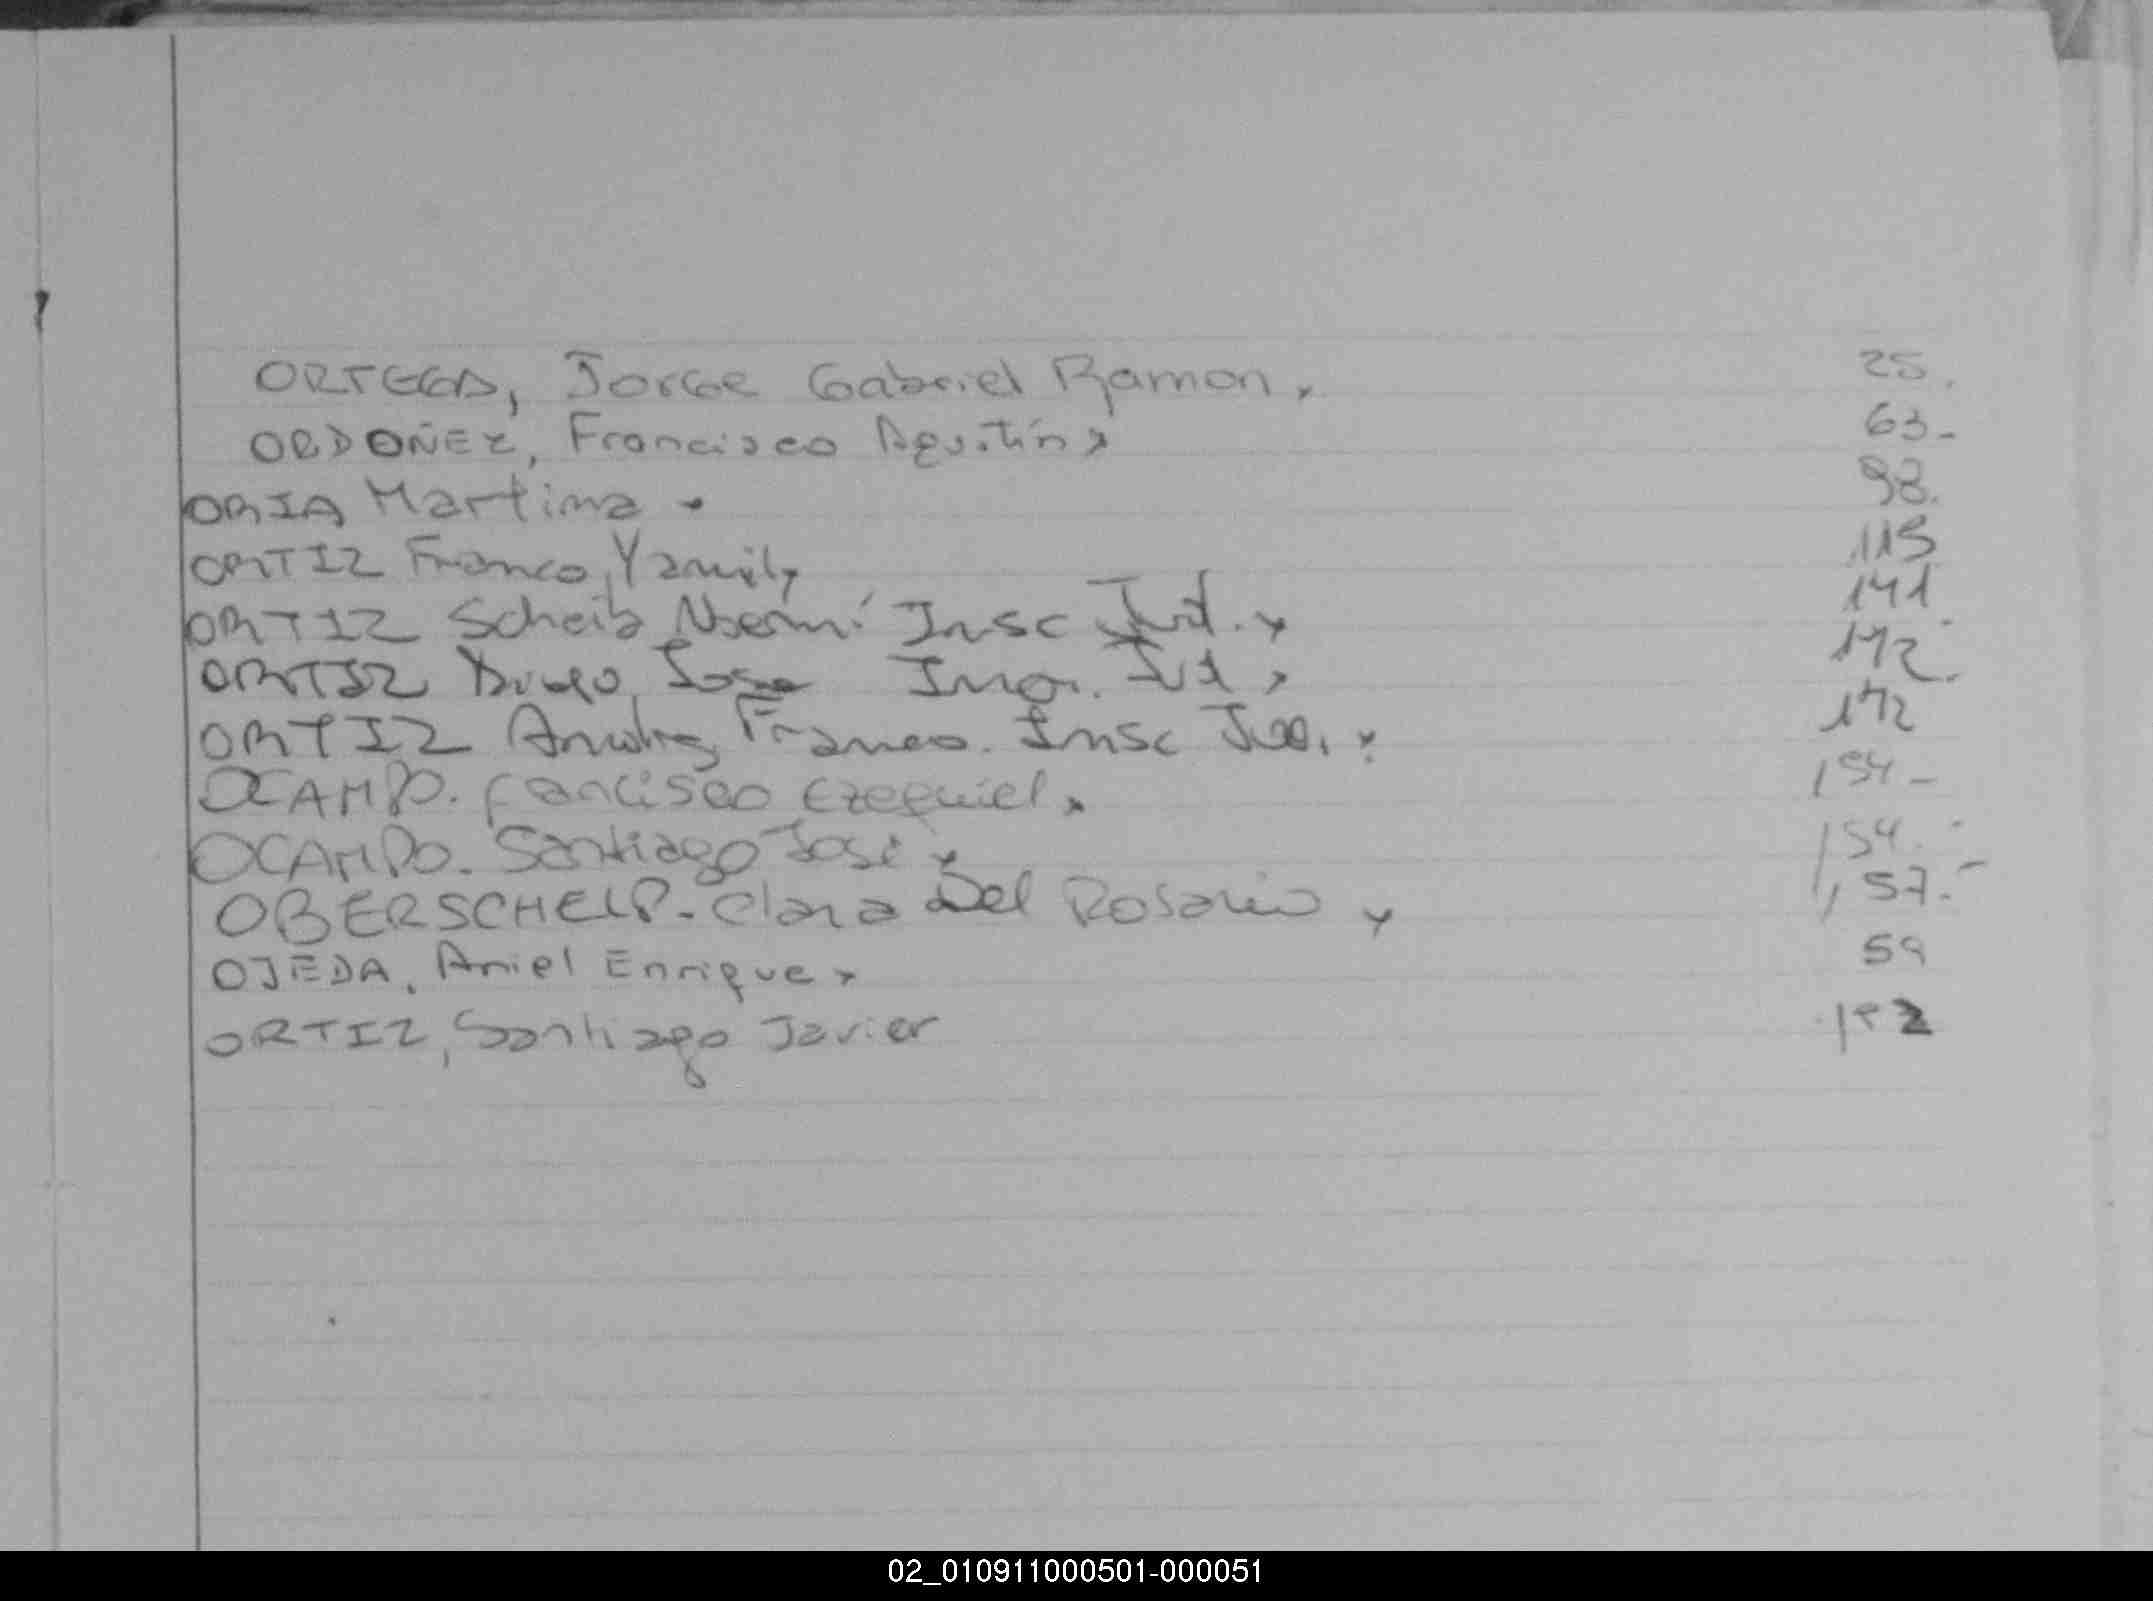 ORTEGA, Jorge Gabriel Ramon. 25.
ORDOÑEZ, Francisco Agustín 63-
ORIA Martina 98.
ORTIZ Franco Yamil 115
ORTIZ Scheib Noemí Insc Jud. 141
ORTIZ Diego Jose Jud 142.
ORTIZ Franco. Insc Jud. 142
OCAMPO. francisco Ezequiel. 154-
OCAMPO. Santiago José 154.
OBERSCHELP- Clara Del Rosario 157.-
OJEDA, Ariel Enrique 59
ORTIZ, Santiago Javier
02_010911000501-000051